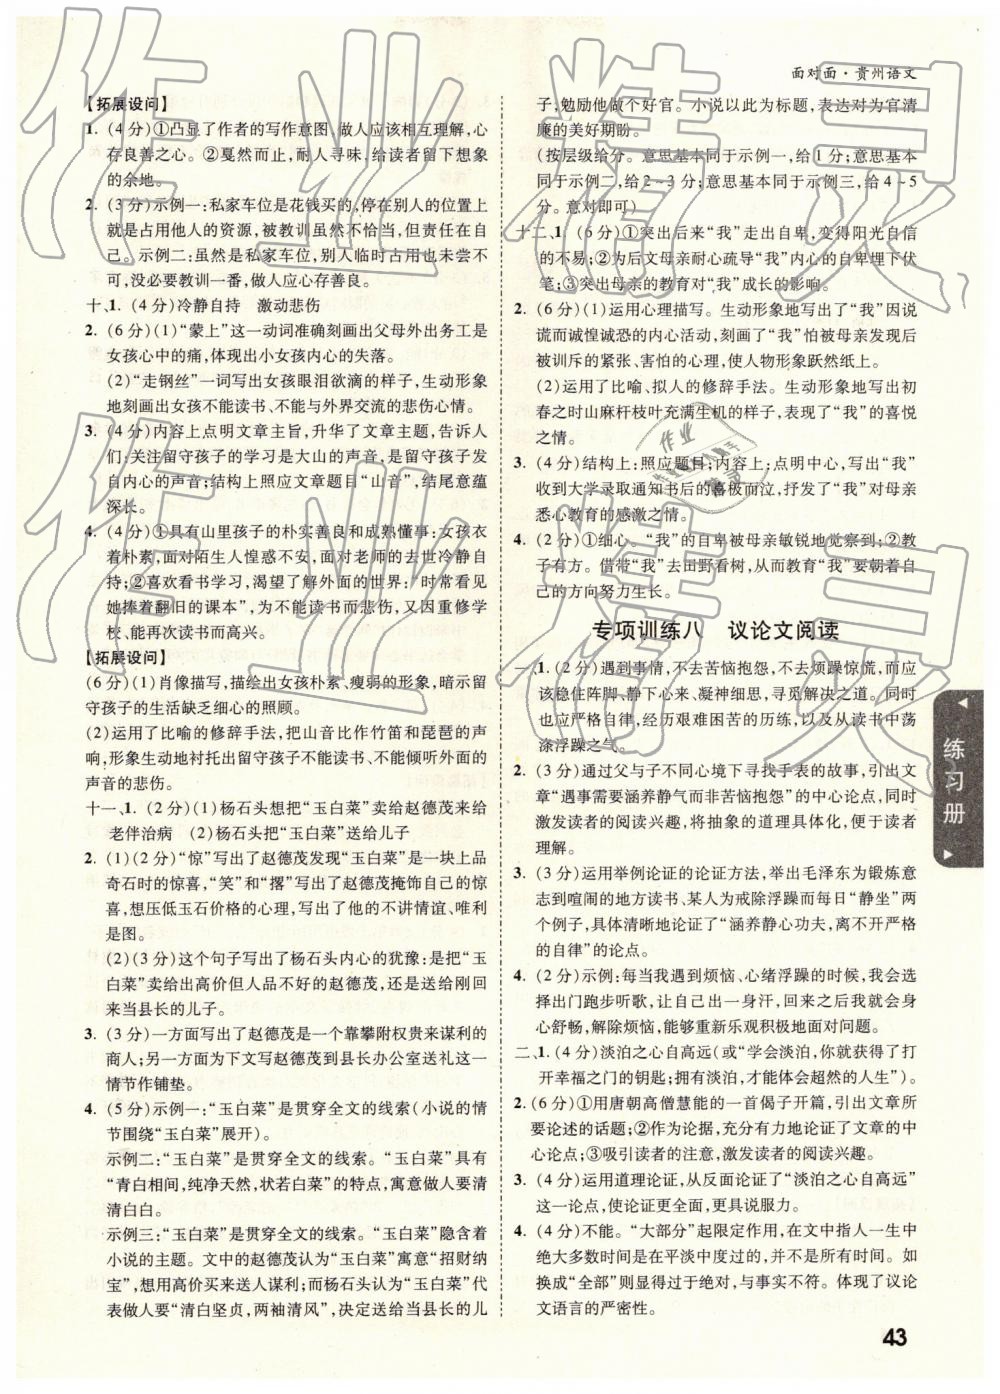 面对面·贵州语文
【拓展设问】
1. (4分)①凸显了作者的写作意图,做人应该相互理解,心
存良善之心。②戛然而止,耐人寻味,给读者留下想象
的余地。
2. (3分)示例一:私家车位是花钱买的,停在别人的位置上
就是占用他人的资源,被教训虽然不恰当,但自己有过
错在先。示例二:虽然是私家车位,别人临时占用也未尝不
可,没必要教训一番,做人应心存善良。
十、1. (4分)冷静自持　激动悲伤
2. (6分)(1)“蒙上”这一动词准确刻画出父母外出务工是
女孩心中的痛,体现出小女孩内心的失落。
(2)“走钢丝”一词写出女孩眼泪欲滴的样子,生动形象
地刻画出女孩不能读书、不能与外界交流的悲伤心情。
3. (4分)内容上点明文章主旨,升华了文章主题,告诉人
们:关注留守孩子的学习是大山的声音,是留守孩子发自
内心的声音;结构上照应文章题目“山音”,结尾意蕴
深长。
4. (4分)①具有山里孩子的朴实善良和成熟懂事:女孩衣
着朴素,面对陌生人惶惑不安,面对老师的去世冷静自
持;②喜欢看书学习,渴望了解外面的世界:“时常看见
她捧着翻旧的课本”,为不能读书而悲伤,又因重修学
校、能再次读书而高兴。
【拓展设问】
(6分)(1)肖像描写,描绘出女孩朴素、瘦弱的形象,暗示留
守孩子的生活缺乏细心的照顾。
(2)运用了比喻的修辞手法,把山音比作竹笛和琵琶的声
响,形象生动地衬托出留守孩子不能读书、不能倾听外面的
声音的悲伤。
十一、1. (2分)(1)杨石头想把“玉白菜”卖给赵德茂来给
老伴治病　(2)杨石头把“玉白菜”送给儿子
2. (1)(2分)“惊”写出了赵德茂发现“玉白菜”是一块上品
奇石时的惊喜,“笑”和“撂”写出了赵德茂掩饰自己的惊
喜,想压低玉石价格的心理,写出了他的不讲情谊、唯利
是图。
(2)(3分)这个句子写出了杨石头内心的犹豫:是把“玉
白菜”卖给出高价但人品不好的赵德茂,还是送给刚回
来当县长的儿子。
3. (3分)一方面写出了赵德茂是一个靠攀附权贵来谋利的
商人;另一方面为下文写赵德茂到县长办公室送礼这一
情节作铺垫。
4. (5分)示例一:“玉白菜”是贯穿全文的线索(小说的情
节围绕“玉白菜”展开)。
示例二:“玉白菜”是贯穿全文的线索。“玉白菜”具有
“青白相间,纯净天然,状若白菜”的特点,寓意做人要清
清白白。
示例三:“玉白菜”是贯穿全文的线索。“玉白菜”隐含着
小说的主题。文中的赵德茂认为“玉白菜”寓意“招财纳
宝”,想用高价买来送人谋利;而杨石头认为“玉白菜”代
表做人要“清白坚贞,两袖清风”,决定送给当县长的儿
子;勉励他做个好官。小说以此为标题,表达对为官清
廉的美好期盼。
(按层级给分。意思基本同于示例一,给1分;意思基本
同于示例二,给2~3分;意思基本同于示例三,给4~5
分。意对即可)
十二、1. (6分)①突出后来“我”走出自卑,变得阳光自信
的不易;②为后文母亲耐心疏导“我”内心的自卑埋下伏
笔;③突出母亲的教育对“我”成长的影响。
2. (6分)(1)运用心理描写。生动形象地写出了“我”因说
谎而诚惶诚恐的内心活动,刻画了“我”怕被母亲发现后
被训斥的紧张、害怕的心理,使人物形象跃然纸上。
(2)运用了比喻、拟人的修辞手法。生动形象地写出初
春之时山麻秆枝叶充满生机的样子,表现了“我”的喜悦
之情。
3. (4分)结构上:照应题目;内容上:点明中心,写出“我”
收到大学录取通知书后的喜极而泣,抒发了“我”对母亲
悉心教育的感激之情。
4. (2分)①细心。“我”的自卑被母亲敏锐地觉察到;②教
子有方。借带“我”去田野看树,从而教育“我”要朝着自
己的方向努力生长。
专项训练八　议论文阅读
一、1. (2分)遇到事情,不去苦恼抱怨,不去烦躁惊慌,而应
该稳住阵脚、静下心来、凝神细思、寻觅解决之道。同时
也应严格自律,经历艰难困苦的历练,以及从读书中荡
涤浮躁之气。
2. (3分)通过父与子不同心境下寻找手表的故事,引出文
章“遇事需要涵养静气而非苦恼抱怨”的中心论点,同时
激发读者的阅读兴趣,将抽象的道理具体化,便于读者
理解。
3. (3分)运用举例论证的论证方法,举出毛泽东为锻炼意
志到喧闹的地方读书、某人为戒除浮躁而每日“静坐”两
个例子,具体清晰地论证了“涵养静心功夫,离不开严格
的自律”的论点。
4. (2分)示例:每当我遇到烦恼、心绪浮躁的时候,我会选
择出门跑步听歌,让自己出一身汗,回来之后我就会身
心舒畅,解除烦恼,能够重新乐观积极地面对问题。
二、1. (4分)淡泊之心自高远(或“学会淡泊,你就获得了打
开幸福之门的钥匙;拥有淡泊,才能体会超然的人生”)。
2.(6分)①用唐朝高僧慧能的一首偈子开篇,引出文章所
要论述的话题;②作为论据,充分有力地论证了文章的中
心论点;③吸引读者的注意,激发读者的阅读兴趣。
3. (4分)运用道理论证,从反面论证了“淡泊之心自高远”
这一论点,使论证更全面,更具说服力。
4. (4分)不能。“大部分”起限定作用,在文中指人一生中
绝大多数时间是在平淡中度过的,并不是所有时间。如
换成“全部”则过于绝对,与事实不符。体现了议论
文语言的严密性。
练习册
43
作业精灵